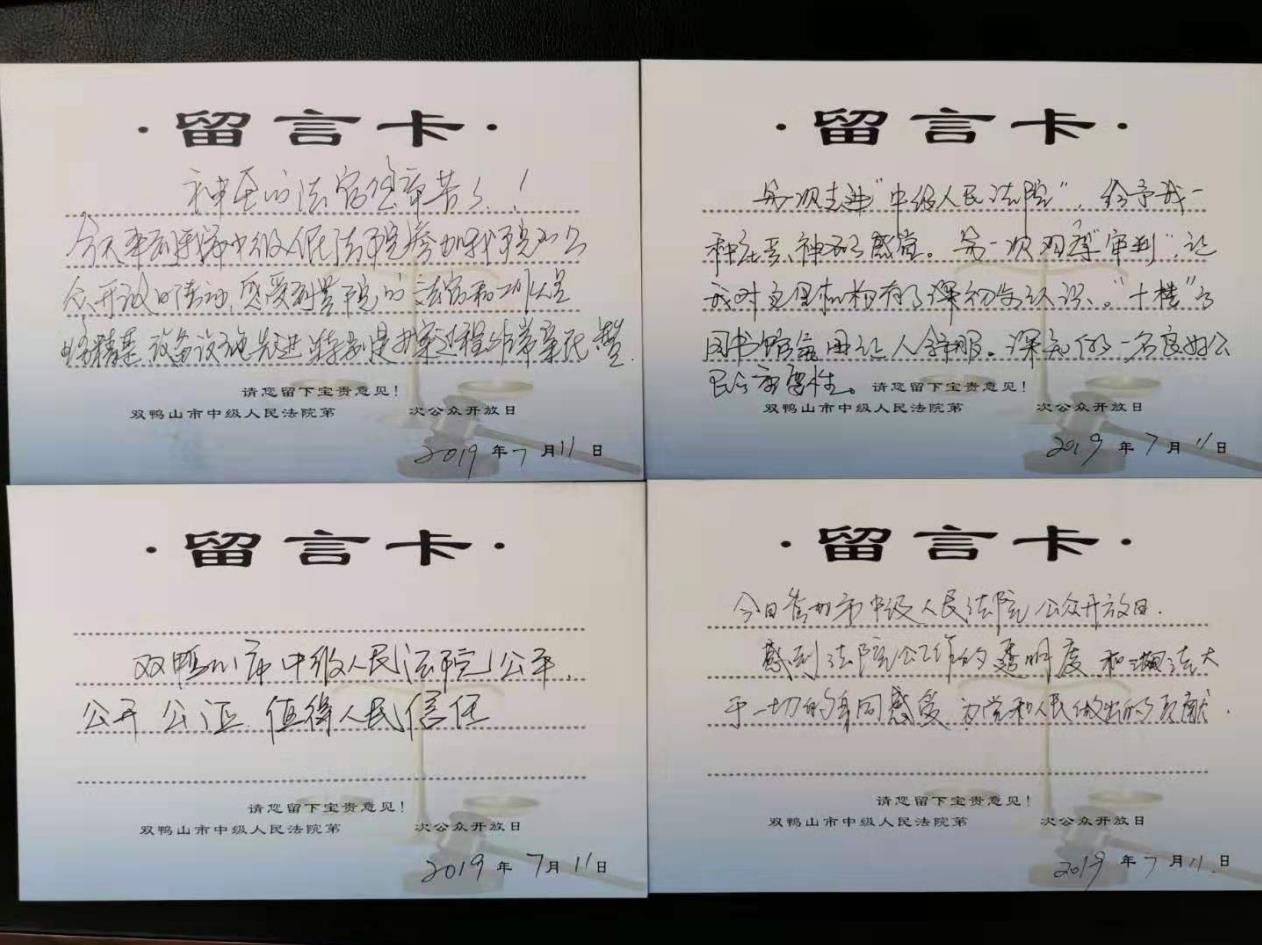 ·留言卡·
神圣的法官您辛苦了！
今天来到中级人民法院参加公
众开放日活动，感受到贵院的法官和工作人员
精湛 设备设施先进 特别是办案过程
请您留下宝贵意见！
双鸭山市中级人民法院第 次公众开放日
2019年7月11日
·留言卡·
第一次走进“中级人民法院”，给予我一
种庄严、神圣的感觉。第一次观摩“审判”，让
我对这里有了深刻的认识。“十楼”的
图书馆氛围让人舒服。深知做一名良好公
民的重要性。
请您留下宝贵意见！
双鸭山市中级人民法院第 次公众开放日
2019年7月11日
·留言卡·
双鸭山市中级人民法院公平，
公开 公证 值得人民信任
请您留下宝贵意见！
双鸭山市中级人民法院第 次公众开放日
2019年7月11日
·留言卡·
今日参加市中级人民法院公众开放日.
感到法院工作的透明度和法大
于一切的共同感受 为党和人民做出的贡献.
请您留下宝贵意见！
双鸭山市中级人民法院第 次公众开放日
2019年7月11日